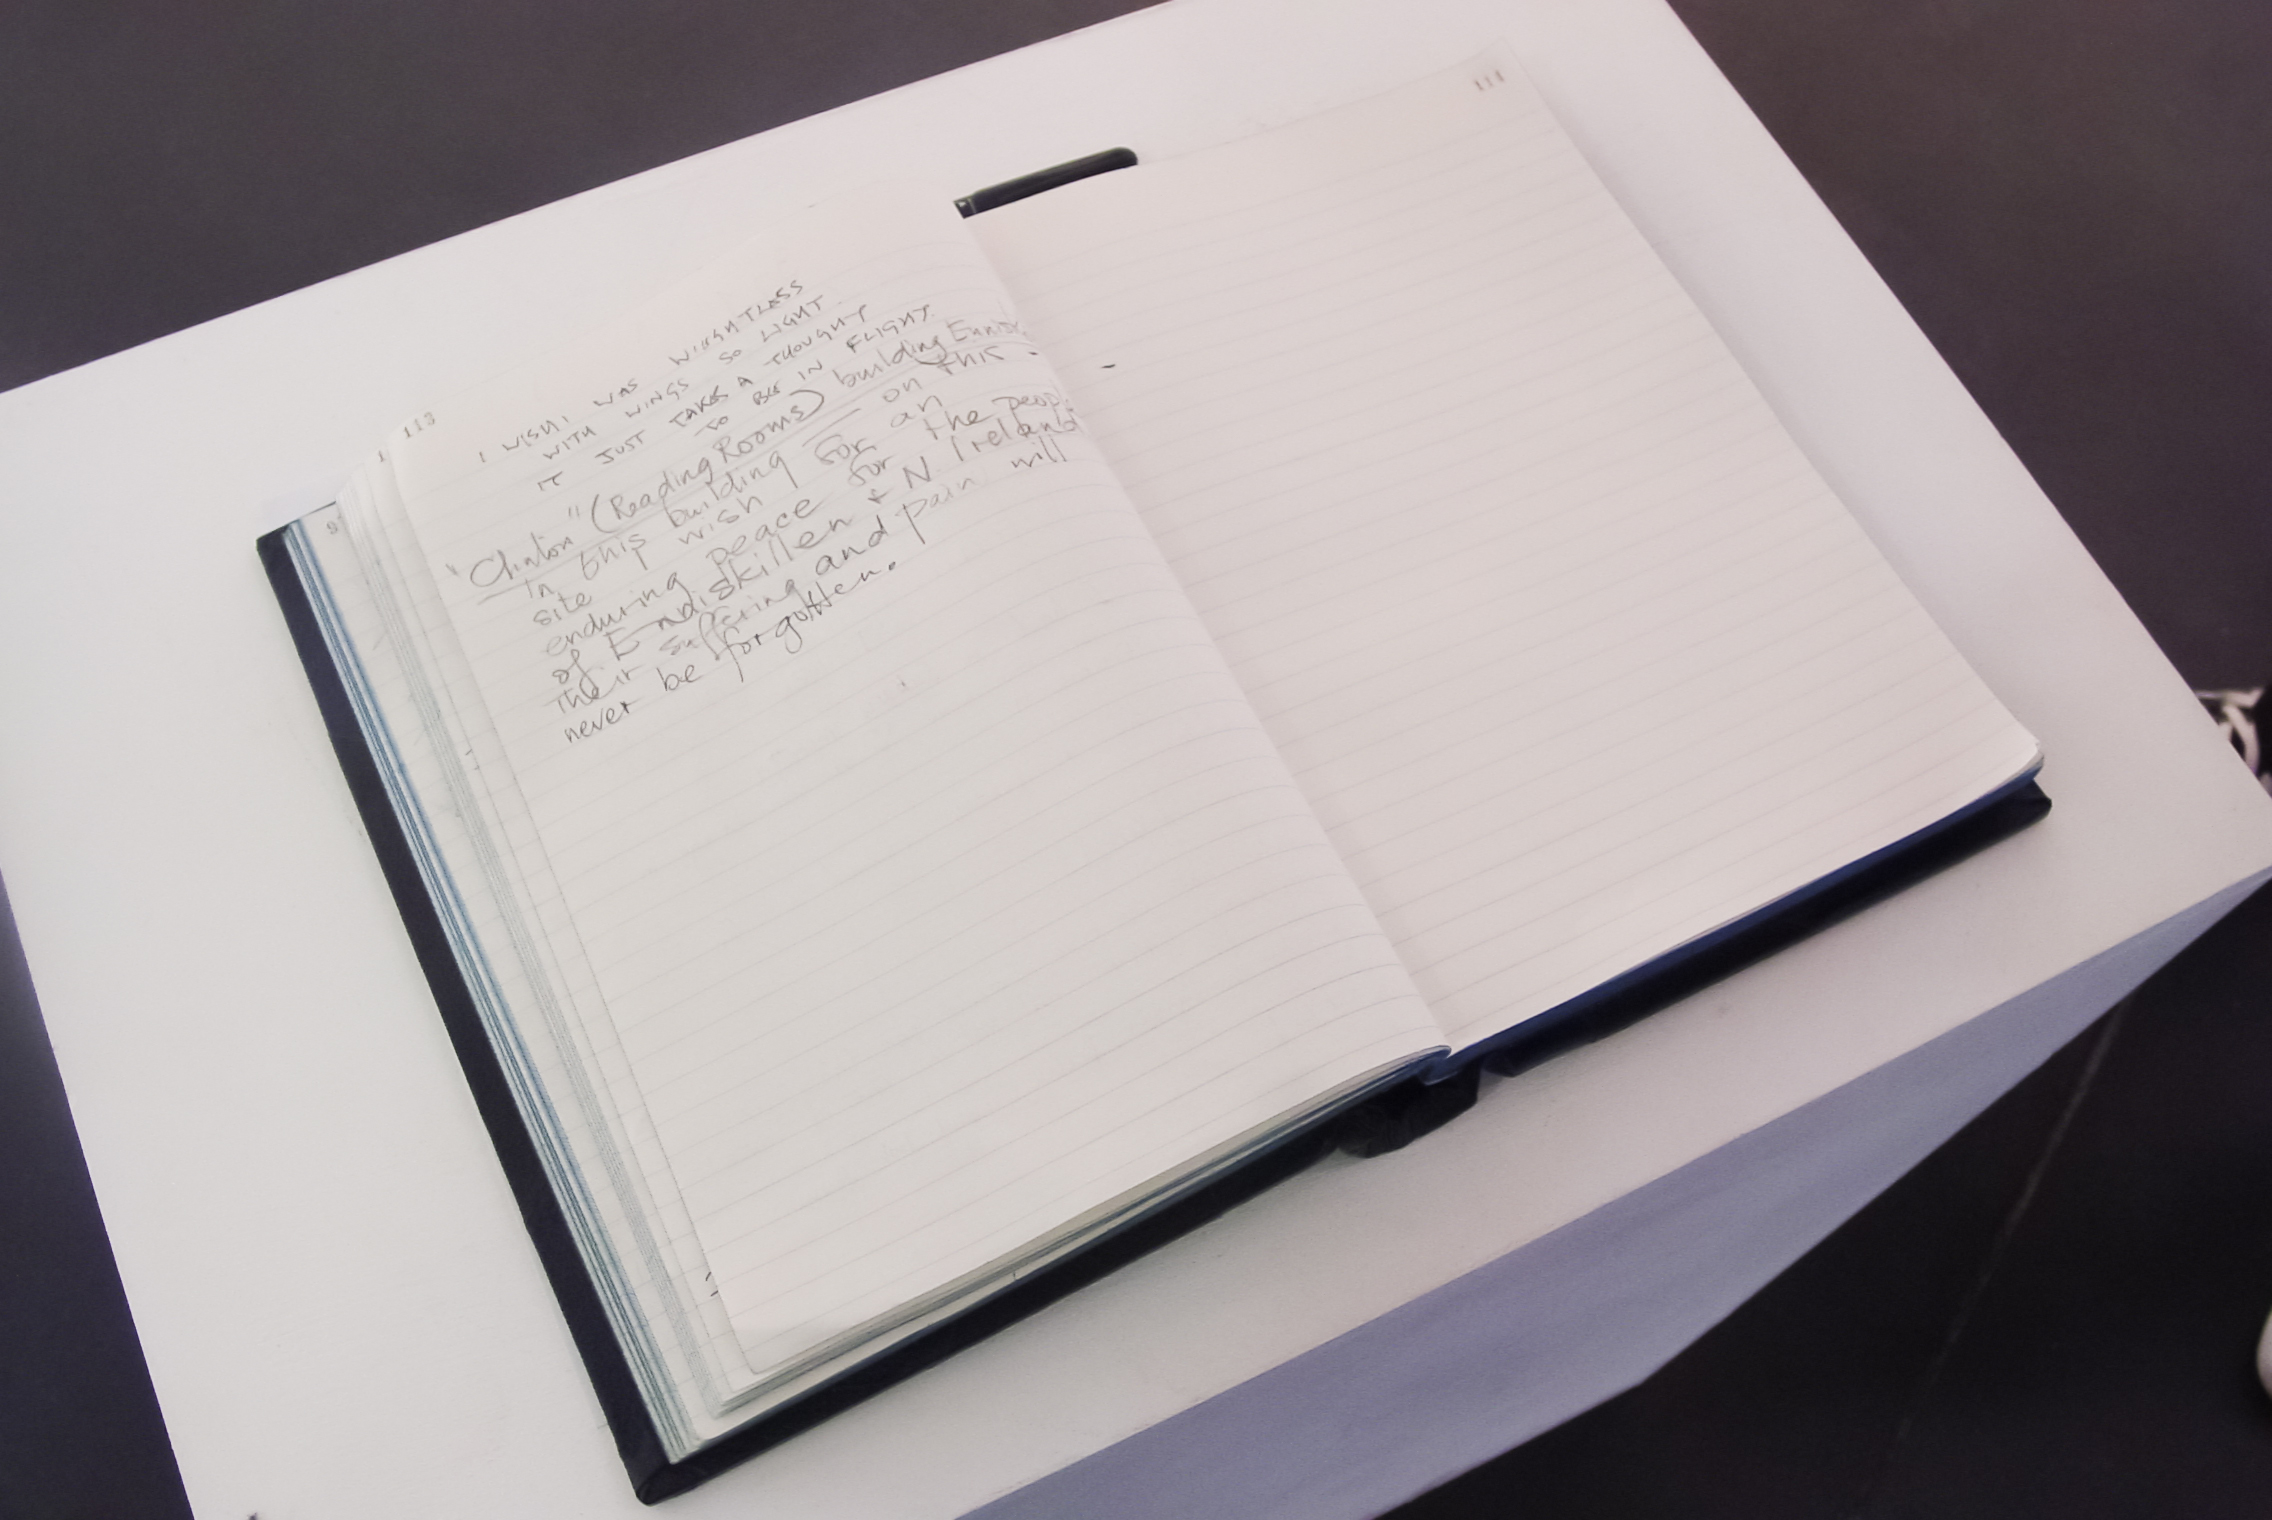 113
I WISH I WAS WIEGHTLASS
WITH WINGS SO LIGHT
IT JUST TAKES A THOUGHT
TO BEE IN FLIGHT.
"Clinton" (Reading Rooms) building
In this building on this
site wish for an
enduring peace for the peop
of Enniskillen + N. Ireland
their suffering and pain will
never be forgotten.
114